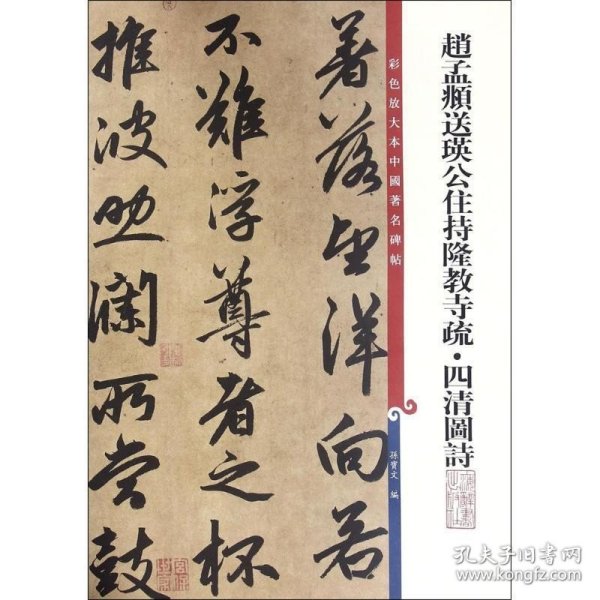 趙孟頫送瑛公住持隆教寺疏·四清圖詩
彩色放大本中國著名碑帖
孫寳文 編
著落望洋向若
不難浮尊者之杯
推波助瀾所嘗鼓
孔夫子旧书网
www.kongfz.com